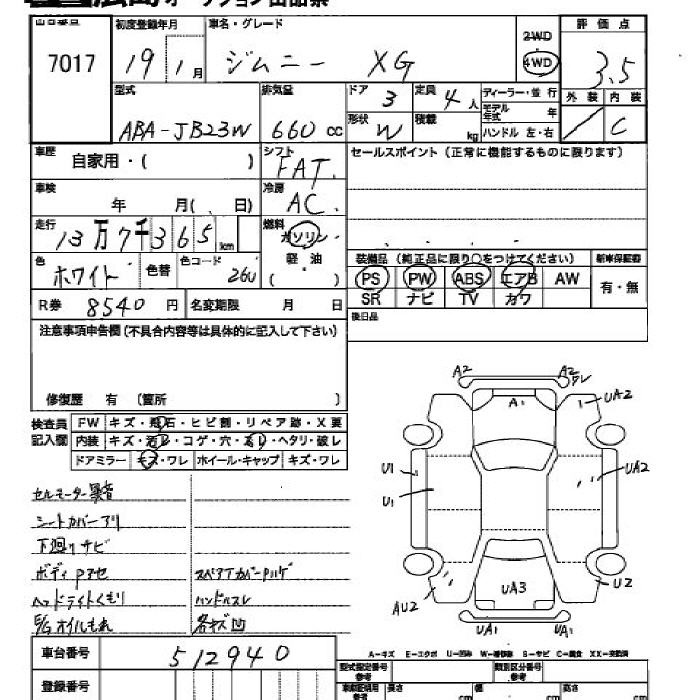 出品番号 初度登録年月 車名・グレード 2WD 評価点
7017 19 1月 ジムニー XG 4WD 3.5
型式 排気量 ドア 3 定員 4人 ディーラー・並行 外装 内装
モデル年式 年
ABA-JB23W 660cc 形状 W 積載 kg ハンドル 左・右 C
車歴 自家用・( ) シフト FAT. セールスポイント(正常に機能するものに限ります)
車検 年 月( 日) 冷房 AC.
走行 13万7千365km 燃料 ガソリン
色 ホワイト 色替 色コード 26U 軽油 ( )
装備品(純正品に限り○をつけてください) 新車保証書
PS PW ABS エアB AW 有・無
SR ナビ TV カワ
R券 8540円 名変期限 月 日
後日品
注意事項申告欄(不具合内容等は具体的に記入して下さい)
修復歴 有 (箇所 )
検査員記入欄 FW キズ・飛石・ヒビ割・リペア跡・X要
内装 キズ・汚れ・コゲ・穴・スレ・ヘタリ・破レ
ドアミラー キズ・ワレ ホイール・キャップ キズ・ワレ
セルモーター異音
シートカバーアリ
下廻りサビ
ボディPヤセ スペアTカバーPハゲ
ヘッドライトくもり ハンドルスレ
E/Gオイルもれ 各キズ凹
A2 A2
A1 UA2
U1 UA2
U1
AU2 UA3 U2
UA1 UA1
車台番号 512940
A-キズ E-エクボ U-凹み W-補修跡 S-サビ C-腐食 XX-交換済
登録番号 型式指定番号 類別区分番号
長さ cm 幅 cm 高さ cm